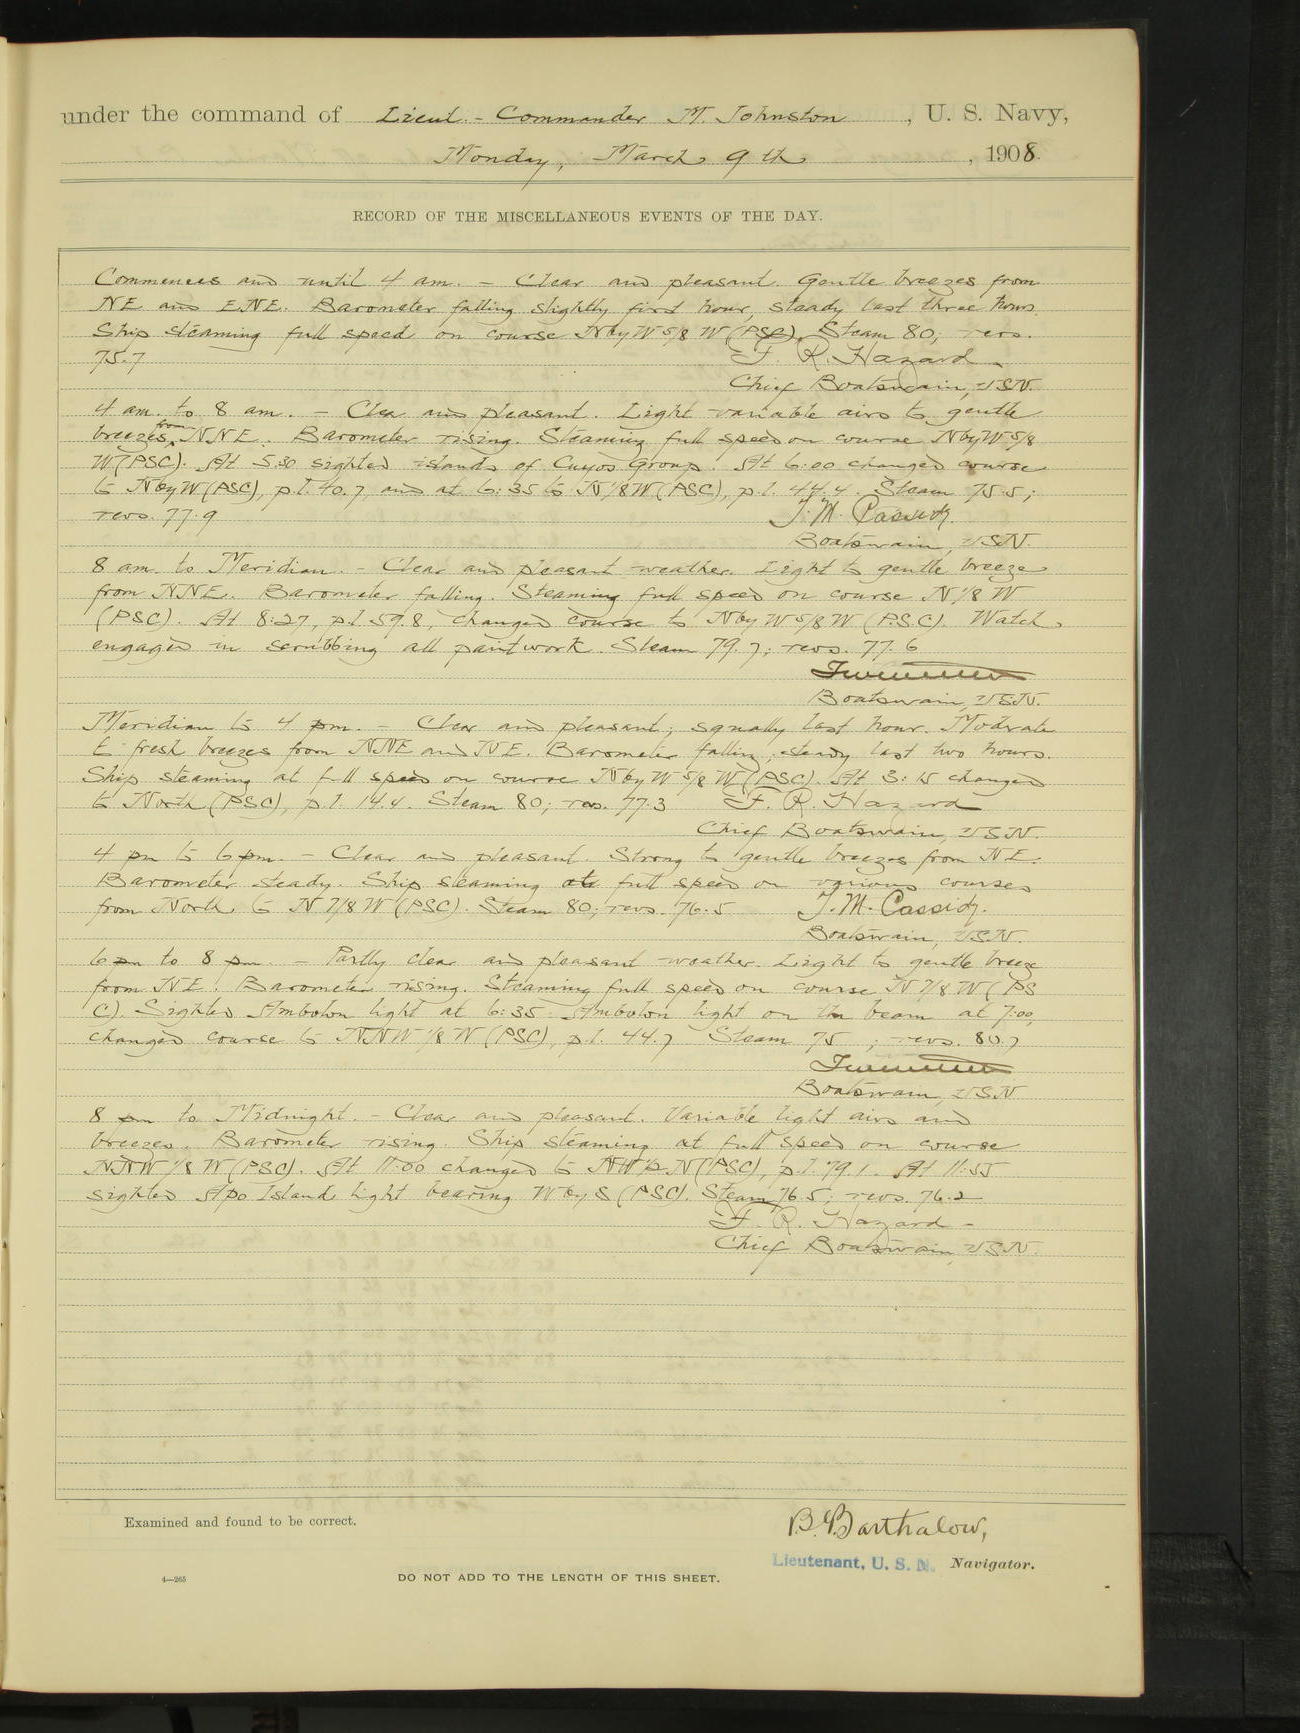 under the command of Lieut.-Commander M. Johnston, U. S. Navy,
Monday, March 9th, 1908.
RECORD OF THE MISCELLANEOUS EVENTS OF THE DAY.
Commences and until 4 am. - Clear and pleasant. Gentle breezes from
NE and ENE. Barometer falling slightly first hour, steady last three hours.
Ship steaming full speed on course NbyW 5/8 W (PSC). Steam 80; revs.
75.7 F. R. Hazard
Chief Boatswain, USN.
4 am. to 8 am. - Clear and pleasant. Light variable airs to gentle
breezes from NNE. Barometer rising. Steaming full speed on course NbyW 5/8
W (PSC). At 5:30 sighted islands of Cuyos Group. At 6:00 changed course
to NbyW (PSC), p.l. 40.7, and at 6:35 to N 1/8 W (PSC), p.l. 44.4. Steam 75.5;
revs. 77.9 J. M. Cassidy.
Boatswain, USN.
8 am. to Meridian. - Clear and pleasant weather. Light to gentle breeze
from NNE. Barometer falling. Steaming full speed on course N 1/8 W
(PSC). At 8:27, p.l. 59.8, changed course to NbyW 5/8 W (P.S.C). Watch
engaged in scrubbing all paintwork. Steam 79.7; revs. 77.6
Boatswain, USN.
Meridian to 4 pm. - Clear and pleasant; squally last hour. Moderate
to fresh breezes from NNE and NE. Barometer falling, steady last two hours.
Ship steaming at full speed on course NbyW 5/8 W (PSC). At 3:15 changed
to North (PSC), p.l. 14.4. Steam 80; revs. 77.3 F. R. Hazard
Chief Boatswain, USN.
4 pm to 6 pm. - Clear and pleasant. Strong to gentle breezes from NE.
Barometer steady. Ship steaming at full speed on various courses
from North to N 7/8 W (PSC). Steam 80; revs. 76.5 J. M. Cassidy.
Boatswain, USN.
6 pm to 8 pm. - Partly clear and pleasant weather. Light to gentle breeze
from NE. Barometer rising. Steaming full speed on course N 7/8 W (PS
C). Sighted Ambolon light at 6:35. Ambolon light on the beam at 7:00,
changed course to NNW 1/8 W (PSC), p.l. 44.7 Steam 75 ; revs. 80.7
Boatswain, USN
8 pm to Midnight. - Clear and pleasant. Variable light airs and
breezes. Barometer rising. Ship steaming at full speed on course
NNW 1/8 W (PSC). At 11:00 changed to NW 1/2 N (PSC), p.l. 79.1. At 11:55
sighted Apo Island light bearing W by S (PSC). Steam 76.5; revs. 76.2
F. R. Hazard -
Chief Boatswain, USN.
Examined and found to be correct.
B. Barthalow,
Lieutenant, U. S. N. Navigator.
4—265
DO NOT ADD TO THE LENGTH OF THIS SHEET.